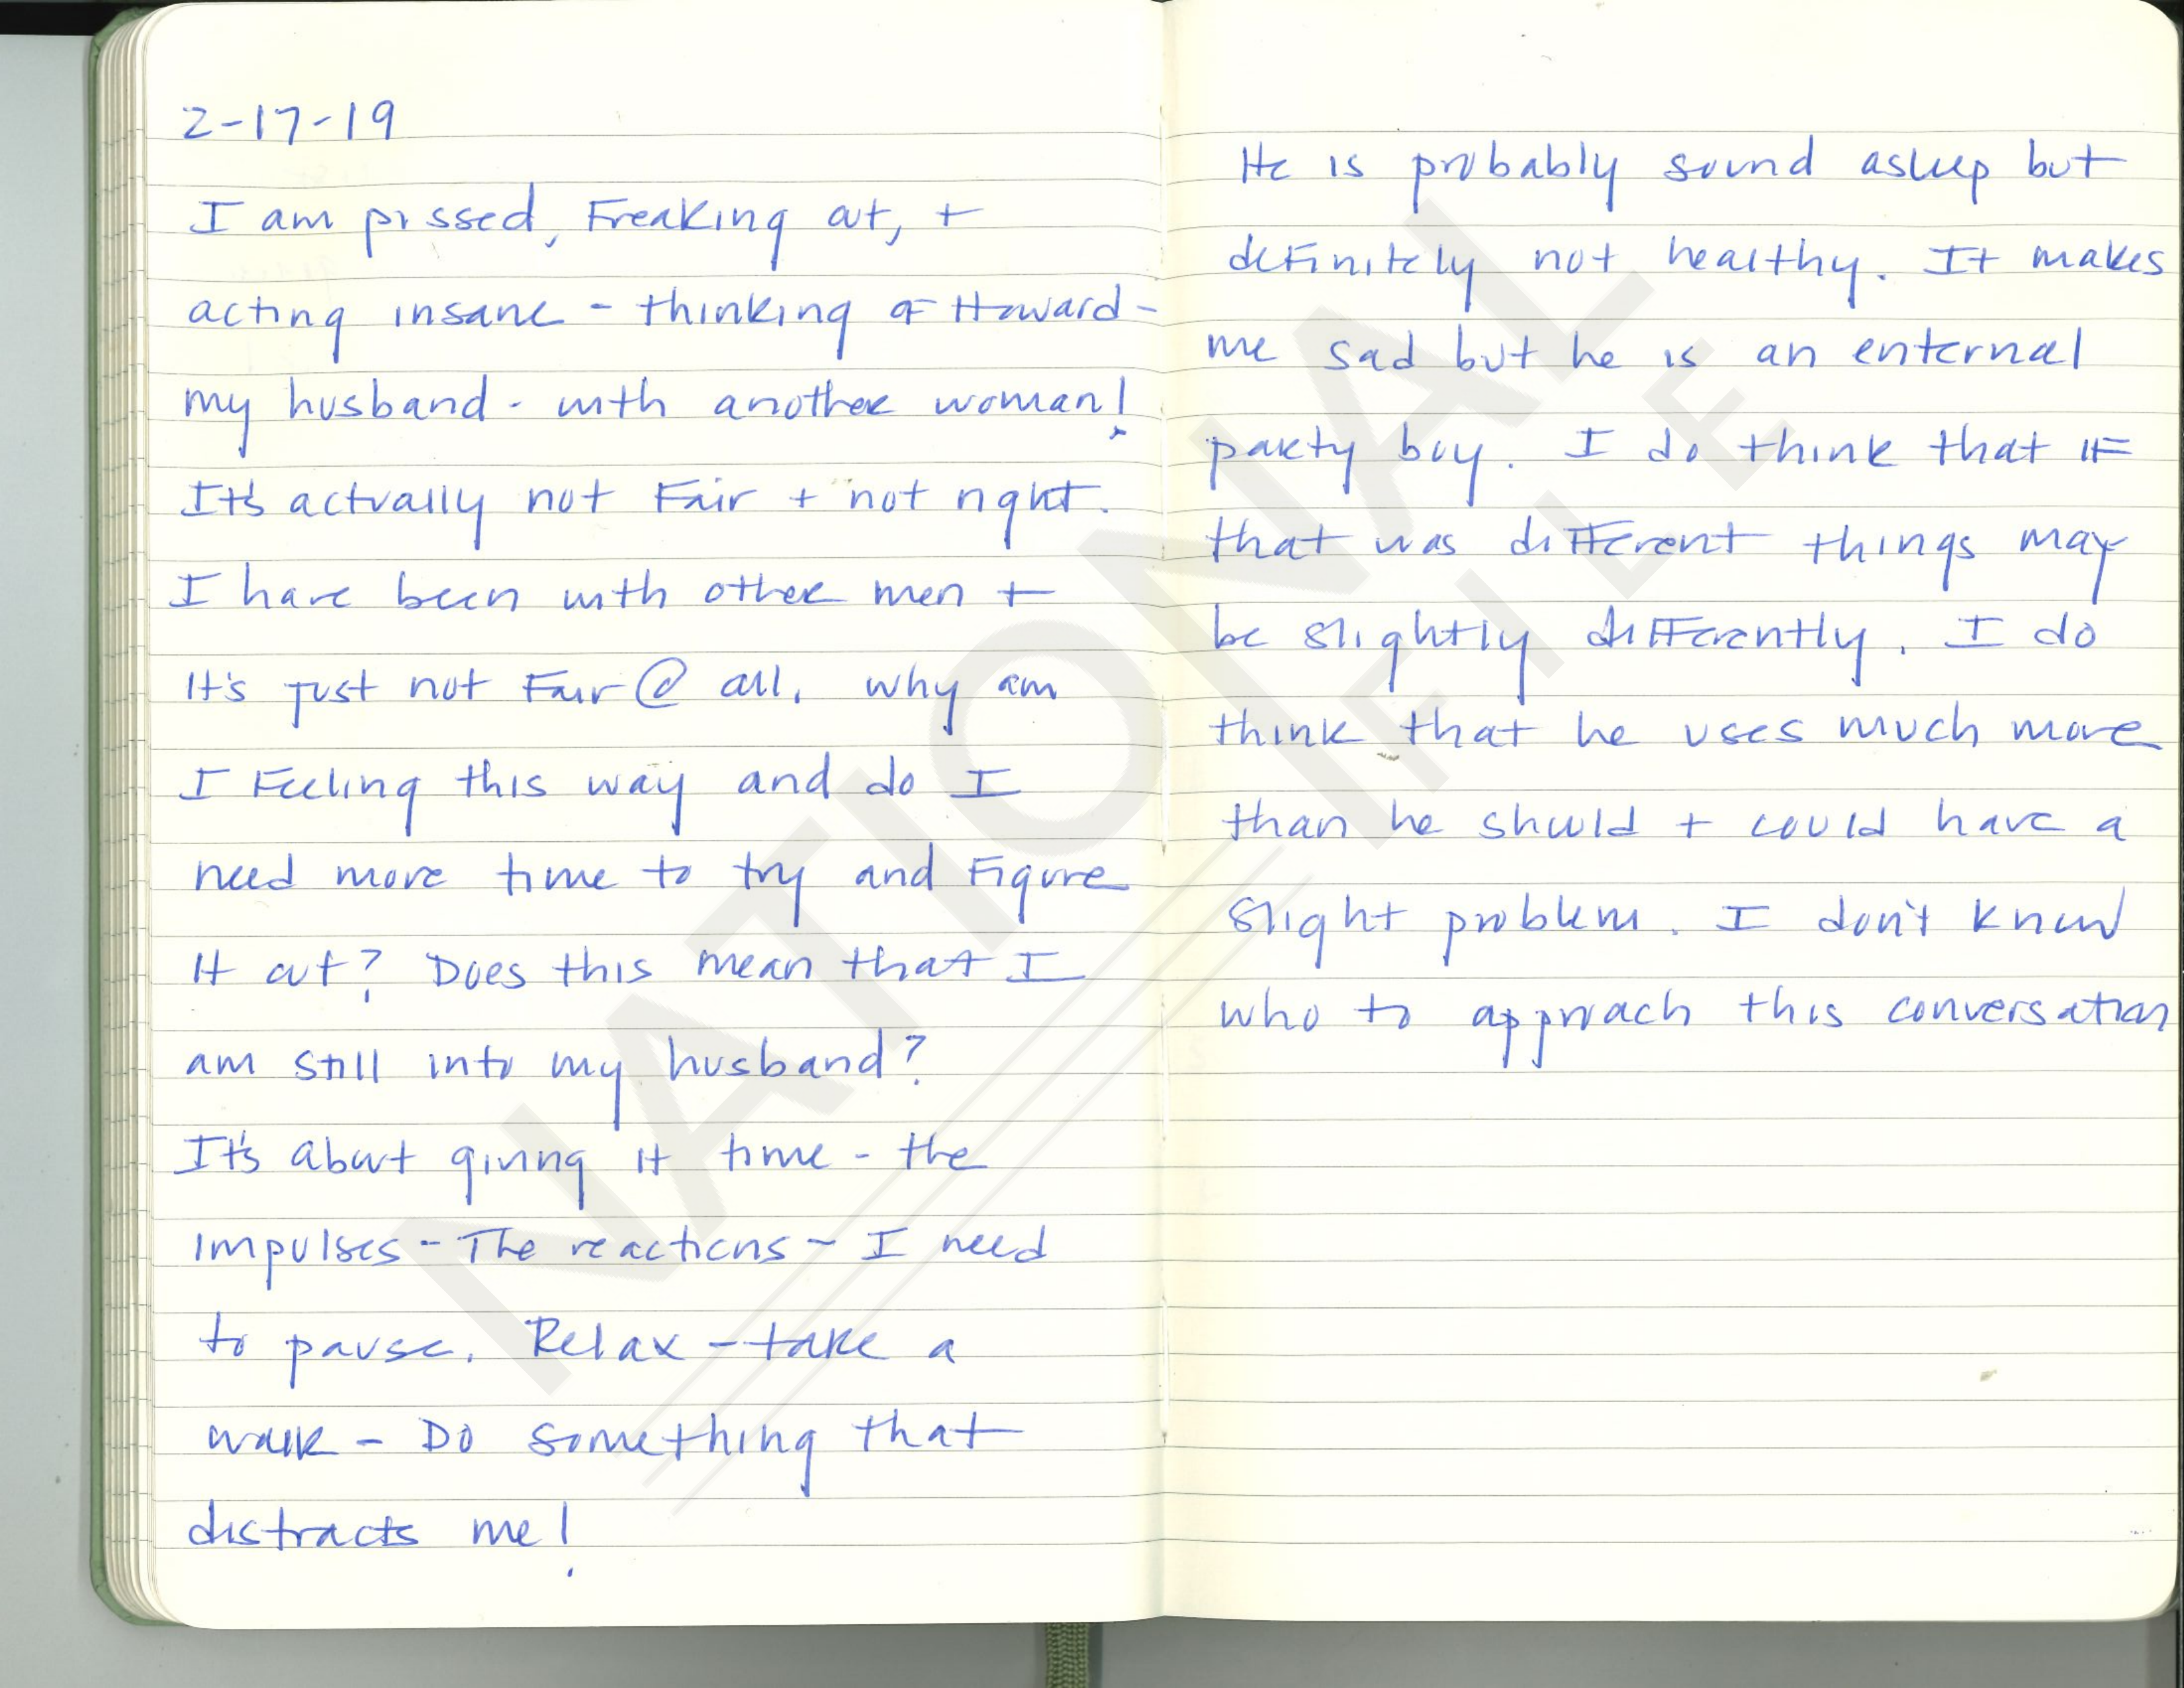 2-17-19
I am pissed, Freaking out, +
acting insane - thinking of Howard -
my husband - with another woman!
It's actually not Fair + not right.
I have been with other men +
It's just not Fair @ all. why am
I Feeling this way and do I
need more time to try and Figure
It out? Does this mean that I
am still into my husband?
It's about giving it time - the
impulses - The reactions - I need
to pause. Relax - take a
walk - Do something that
distracts me!
He is probably sound asleep but
definitely not healthy. It makes
me sad but he is an enternal
party boy. I do think that IF
that was different things may
be slightly differently. I do
think that he uses much more
than he should + could have a
slight problem. I don't know
who to approach this conversation
NATIONAL
FILE